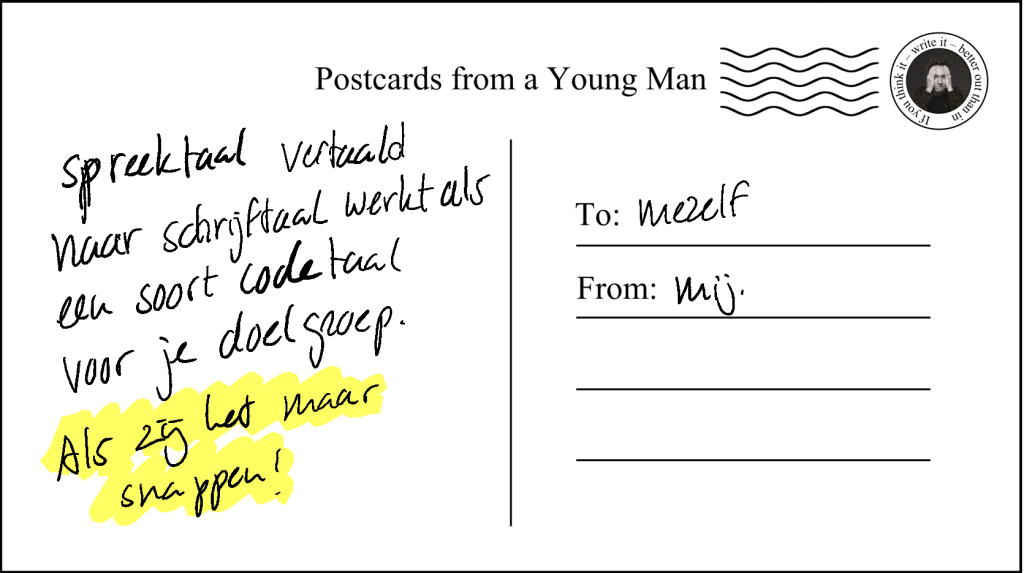 Postcards from a Young Man
If you think it – write it – better out than in
spreektaal vertaald
naar schrijftaal werkt als
een soort codetaal
voor je doelgroep.
Als zij het maar
snappen!
To: mezelf
From: mij.